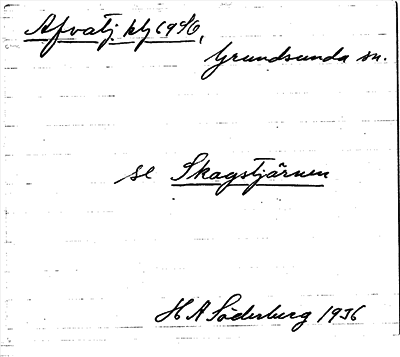 Afvatj
Grundsunda sn.
se Skagstjärnen
H A Söderberg 1936